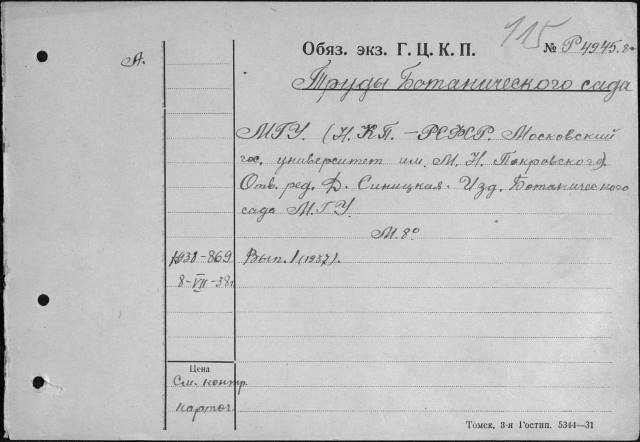 115
Обяз. экз. Г. Ц. К. П. № Р 4945.8°
А.
Труды Ботанического сада
МГУ. (Н.К.П. – РСФСР. Московский
гос. университет им. М. Н. Покровского).
Отв. ред. Ф. Синицкая. Изд. Ботанического
сада МГУ.
М. 8°
1938-869 Вып. 1 (1937).
8-VII-38г.
Цена
См. контр.
карточ.
Томск, 3-я Гостип. 5344—31